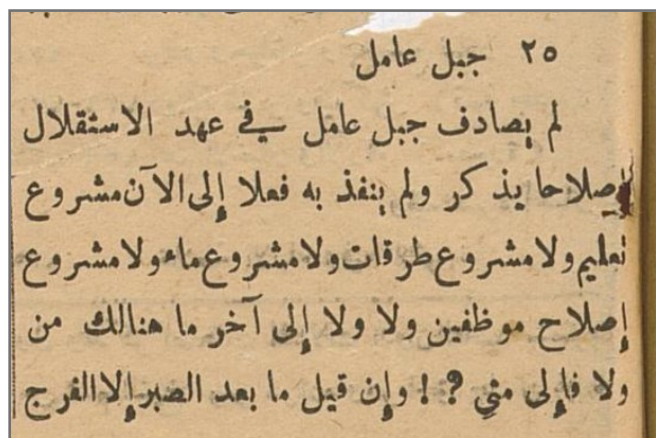 ٢٥ جبل عامل
لم يصادف جبل عامل في عهد الاستقلال
إصلاحا يذكر ولم ينفذ به فعلا إلى الآن مشروع
تعليم ولا مشروع طرقات ولا مشروع ماء ولا مشروع
إصلاح موظفين ولا ولا إلى آخر ما هنالك من
ولا فإلى متى ?! وإن قيل ما بعد الصبر إلا الفرج